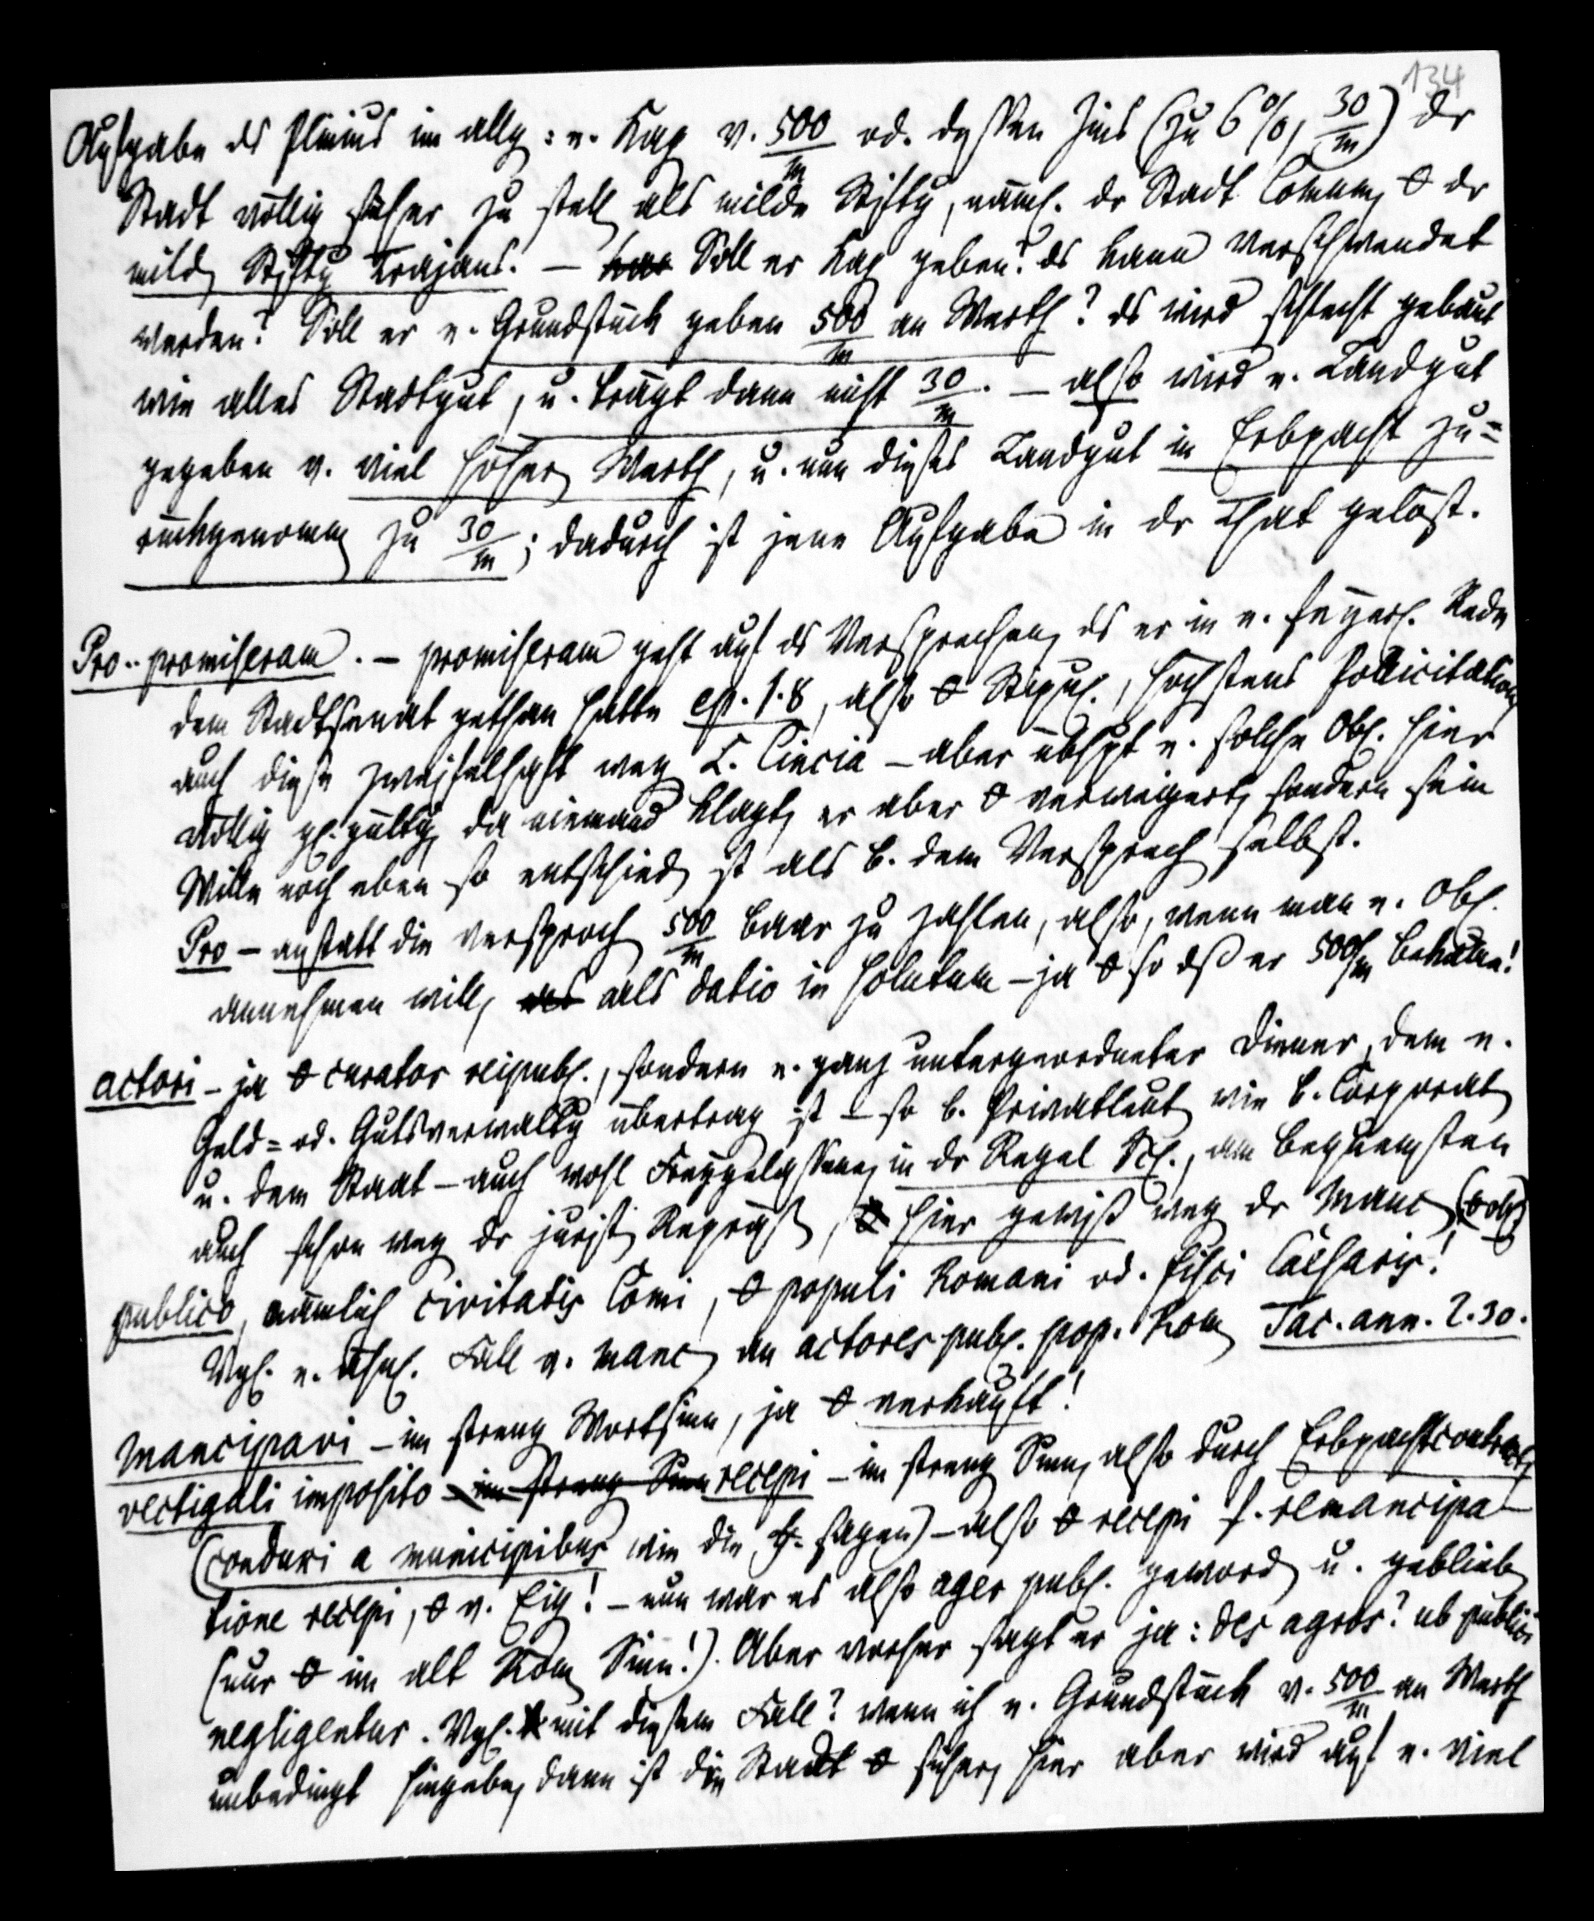 134
Aufgabe ds Plinius im allg: e. Kap v. 500/m od. dessen Zins (zu 6%, 30/m) dr
Stadt völlig sicher zu stell als milde Stiftg, näml. dr Stadt Comum, 0 dr
mild Stiftg Trajans. — Soll er Kap geben? ds kann verschwendet
werden? Soll er e. Grundstück geben 500/m an Werth? ds wird schlecht gebaut
wie alles Stadtgut, u. trägt dann nicht 30/m. — also wird e. Landgut
gegeben v. viel höher Werth, u. nun dieses Landgut in Erbpacht zu=
rückgenomm zu 30/m; dadurch ist jene Aufgabe in dr That gelöst.
Pro.. promiseram. — promiseram geht auf ds Versprechen, ds er in e. feyerl. Rede
dem Stadtsenat gethan hatte ep. 1.8, also 0 Stipul., höchstens Pollicitation
auch diese zweifelhaft weg L. Cincia — aber übhpt e. solche Obl. hier
völlig gl.gültig, da niemand klagt, er aber 0 verweigert, sondern sein
Wille noch eben so entschied ist als b. dem Versprech selbst.
Pro — anstatt die versproch 500/m baar zu zahlen, also, wenn man e. Obl.
annehmen will, als datio in solutum — ja 0 so dß er 500/m bekäme!
actori — ja 0 curator reipubl., sondern e. ganz untergeordneter Diener, dem e.
Geld= od. Gutsverwaltg übertrag ist — so b. Privatleut wie b. Corporat
u. dem Staat — auch wohl Freygelassene, in dr Regel Scl., am bequemsten
auch schon weg dr jurist Repräs, hier gewiß weg dr Manc
publico, nämlich civitatis Comi, 0 populi Romani od. fisci Caesaris!
Vgl. e. ähnl. Fall v. Manc an actores publ. pop. Rom Tac. ann. 2.30.
Mancipavi — im streng Wortsinn, ja 0 verkauft!
vectigali imposito — im streng Sinn recepi — im streng Sinn, also durch Erbpachtcontract
(conduxi a municipibus wie die J. sagen) — also 0 recepi s. remancipa-
tione recepi, 0 v. Eig! — nun war es also ager publ. geword u. geblieb
(nur 0 im alt Röm Sinn!). Aber vorher sagt er ja: des agros? ut publici
negligentur. Vgl. mit diesem Fall? wenn ich e. Grundstück v. 500/m an Werth
unbedingt hingebe, dann ist die Stadt 0 sicher, hier aber wird auf e. viel